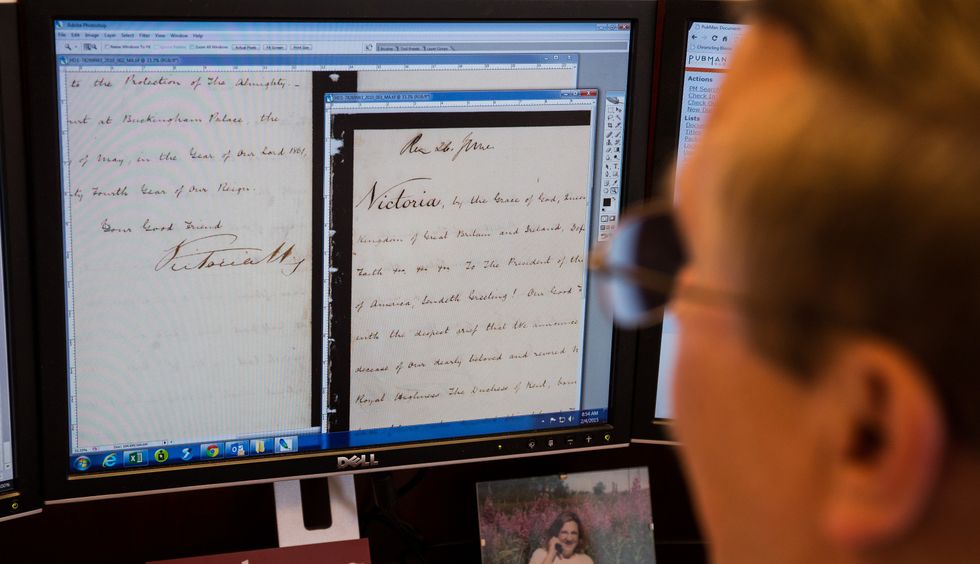 Adobe Photoshop
File Edit Image Layer Select Filter View Window Help
Resize Windows To Fit Ignore Palettes Zoom All Windows Actual Pixels Fit Screen Print Size
Brushes Tool Presets Layer Comps
to the Protection of The Almighty. –
at Buckingham Palace, the
of May, in the Year of Our Lord 1861,
Fourth Year of Our Reign.
Your Good Friend
Victoria
Rec 26. June
Victoria, by the Grace of God,
Kingdom of Great Britain and Ireland,
Faith &c. &c. &c. To The President of the
of America, Sendeth Greeting! Our Good
with the deepest grief that We announce
decease of Our dearly beloved and revered
Royal Highness The Duchess of Kent, born
8:54 AM
2/4/2015
DELL
PubMan Document
Chronicling
PUBMAN
Actions
PM Search
Check In
Check
New
Lists